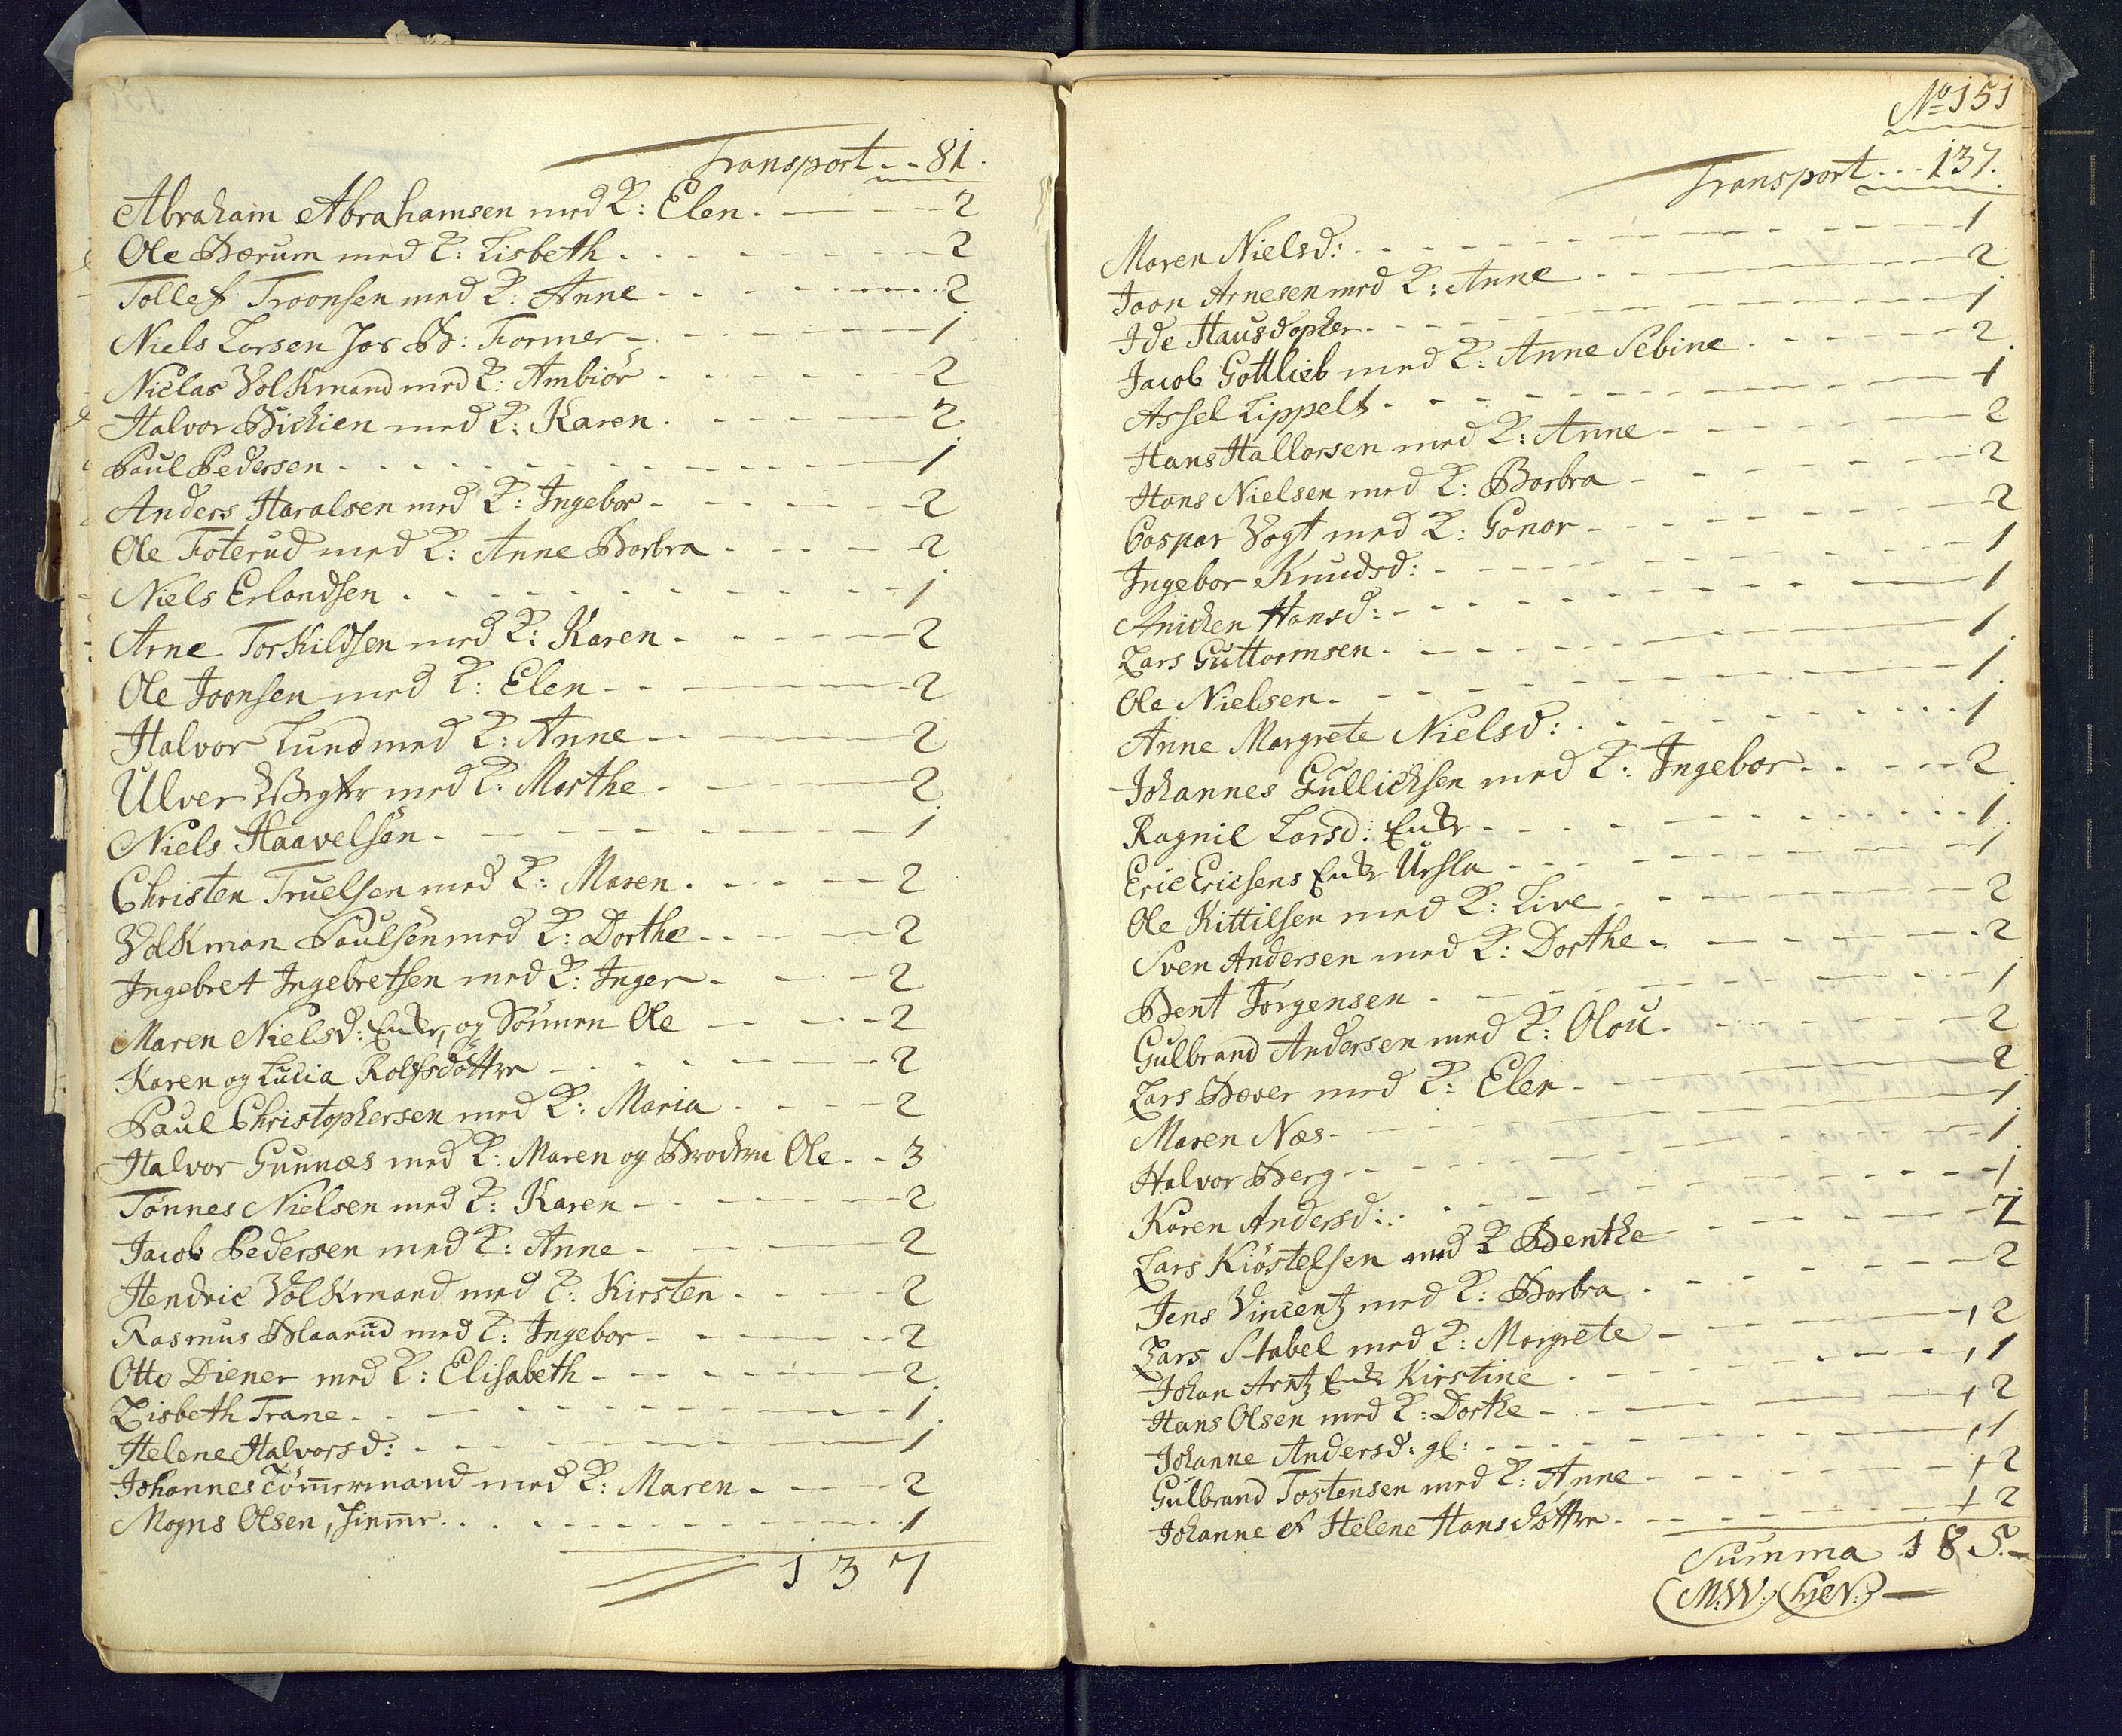 Transport - - 81.
Abraham Abrahamsen med K: Elen. - - - 2
Ole Bærum med K: Lisbeth - - - 2
Tollef Troonsen med K: Anne - - - 2
Niels Larsen Jos B: Former - - - 1
Niclas Volkmand med K: Ambiör - - - 2
Halvor Bickien med K: Karen - - - 2
Paul Pedersen - - - 1
Anders Haralsen med K: Ingebor - - - 2
Ole Foterud med K: Anne Barbra - - - 2
Niels Erlandsen - - - 1
Arne Torkildsen med K: Karen - - - 2
Ole Joonsen med K: Elen - - - 2
Halvor Lund med K: Anne - - - 2
Ulver med K: Marthe - - - 2
Niels Haavelsen - - - 1
Christen Truelsen med K: Maren - - - 2
Volkman Paulsen med K: Dorthe - - - 2
Ingebret Ingebretsen med K: Inger - - - 2
Maren Nielsd: Enke, og Sönnen Ole - - - 2
Karen og Lucia Rolfsdöttre - - - 2
Paul Christophersen med K: Maria - - - 2
Halvor Gunnæs med K: Maren og Broderen Ole - - 3
Tönnes Nielsen med K: Karen - - - 2
Jacob Pedersen med K: Anne - - - 2
Hendric Volkmand med K: Kirsten - - - 2
Rasmus Blaarud med K: Ingebor - - - 2
Otto Diener med K: Elisabeth - - - 2
Lisbeth Trane - - - 1
Helene Halvorsd: - - - 1
Johannes Tömmermand med K: Maren - - - 2
Mogns Olsen, - - - 1
137
No 151
Transport - - - 137.
Maren Nielsd: - - - 1
Joon Arnesen med K: Anne - - - 2
Ide Hausdopher - - - 1
Jacob Gottlieb med K: Anne Sebine - - - 2
Assel Lippelt - - - 1
Hans Hallorsen med K: Anne - - - 2
Hans Nielsen med K: Barbra - - - 2
Caspar Vogt med K: Gonor - - - 2
Ingebor Knudsd: - - - 1
Anicken Hansd: - - - 1
Lars Guttormsen - - - 1
Ole Nielsen - - - 1
Anne Margrete Nielsd: - - - 1
Johannes Gullichsen med K: Ingebor - - - 2
Ragnil Larsd: Enke - - - 1
Eric Ericsens Enke Ursla - - - 1
Ole Kittilsen med K: Live - - - 2
Sven Andersen med K: Dorthe - - - 2
Bent Jörgensen - - - 1
Gulbrand Andersen med K: Olou - - - 2
Lars Bæver med K: Elen - - - 2
Maren Næs - - - 1
Halvor Berg - - - 1
Karen Andersd: - - - 1
Lars Kiöstelsen med K Benthe - - - 2
Jens Vincentz med K: Barbra - - - 2
Lars Stabel med K: Margrete - - - 2
Johan Arntz Enke Kirstine - - - 1
Hans Olsen med K: Dorthe - - - 2
Johanne Andersd: gl: - - - 1
Gulbrand Tostensen med K: Anne - - - 2
Johanne et Helene Hansdöttre - - - 2
Summa 185.